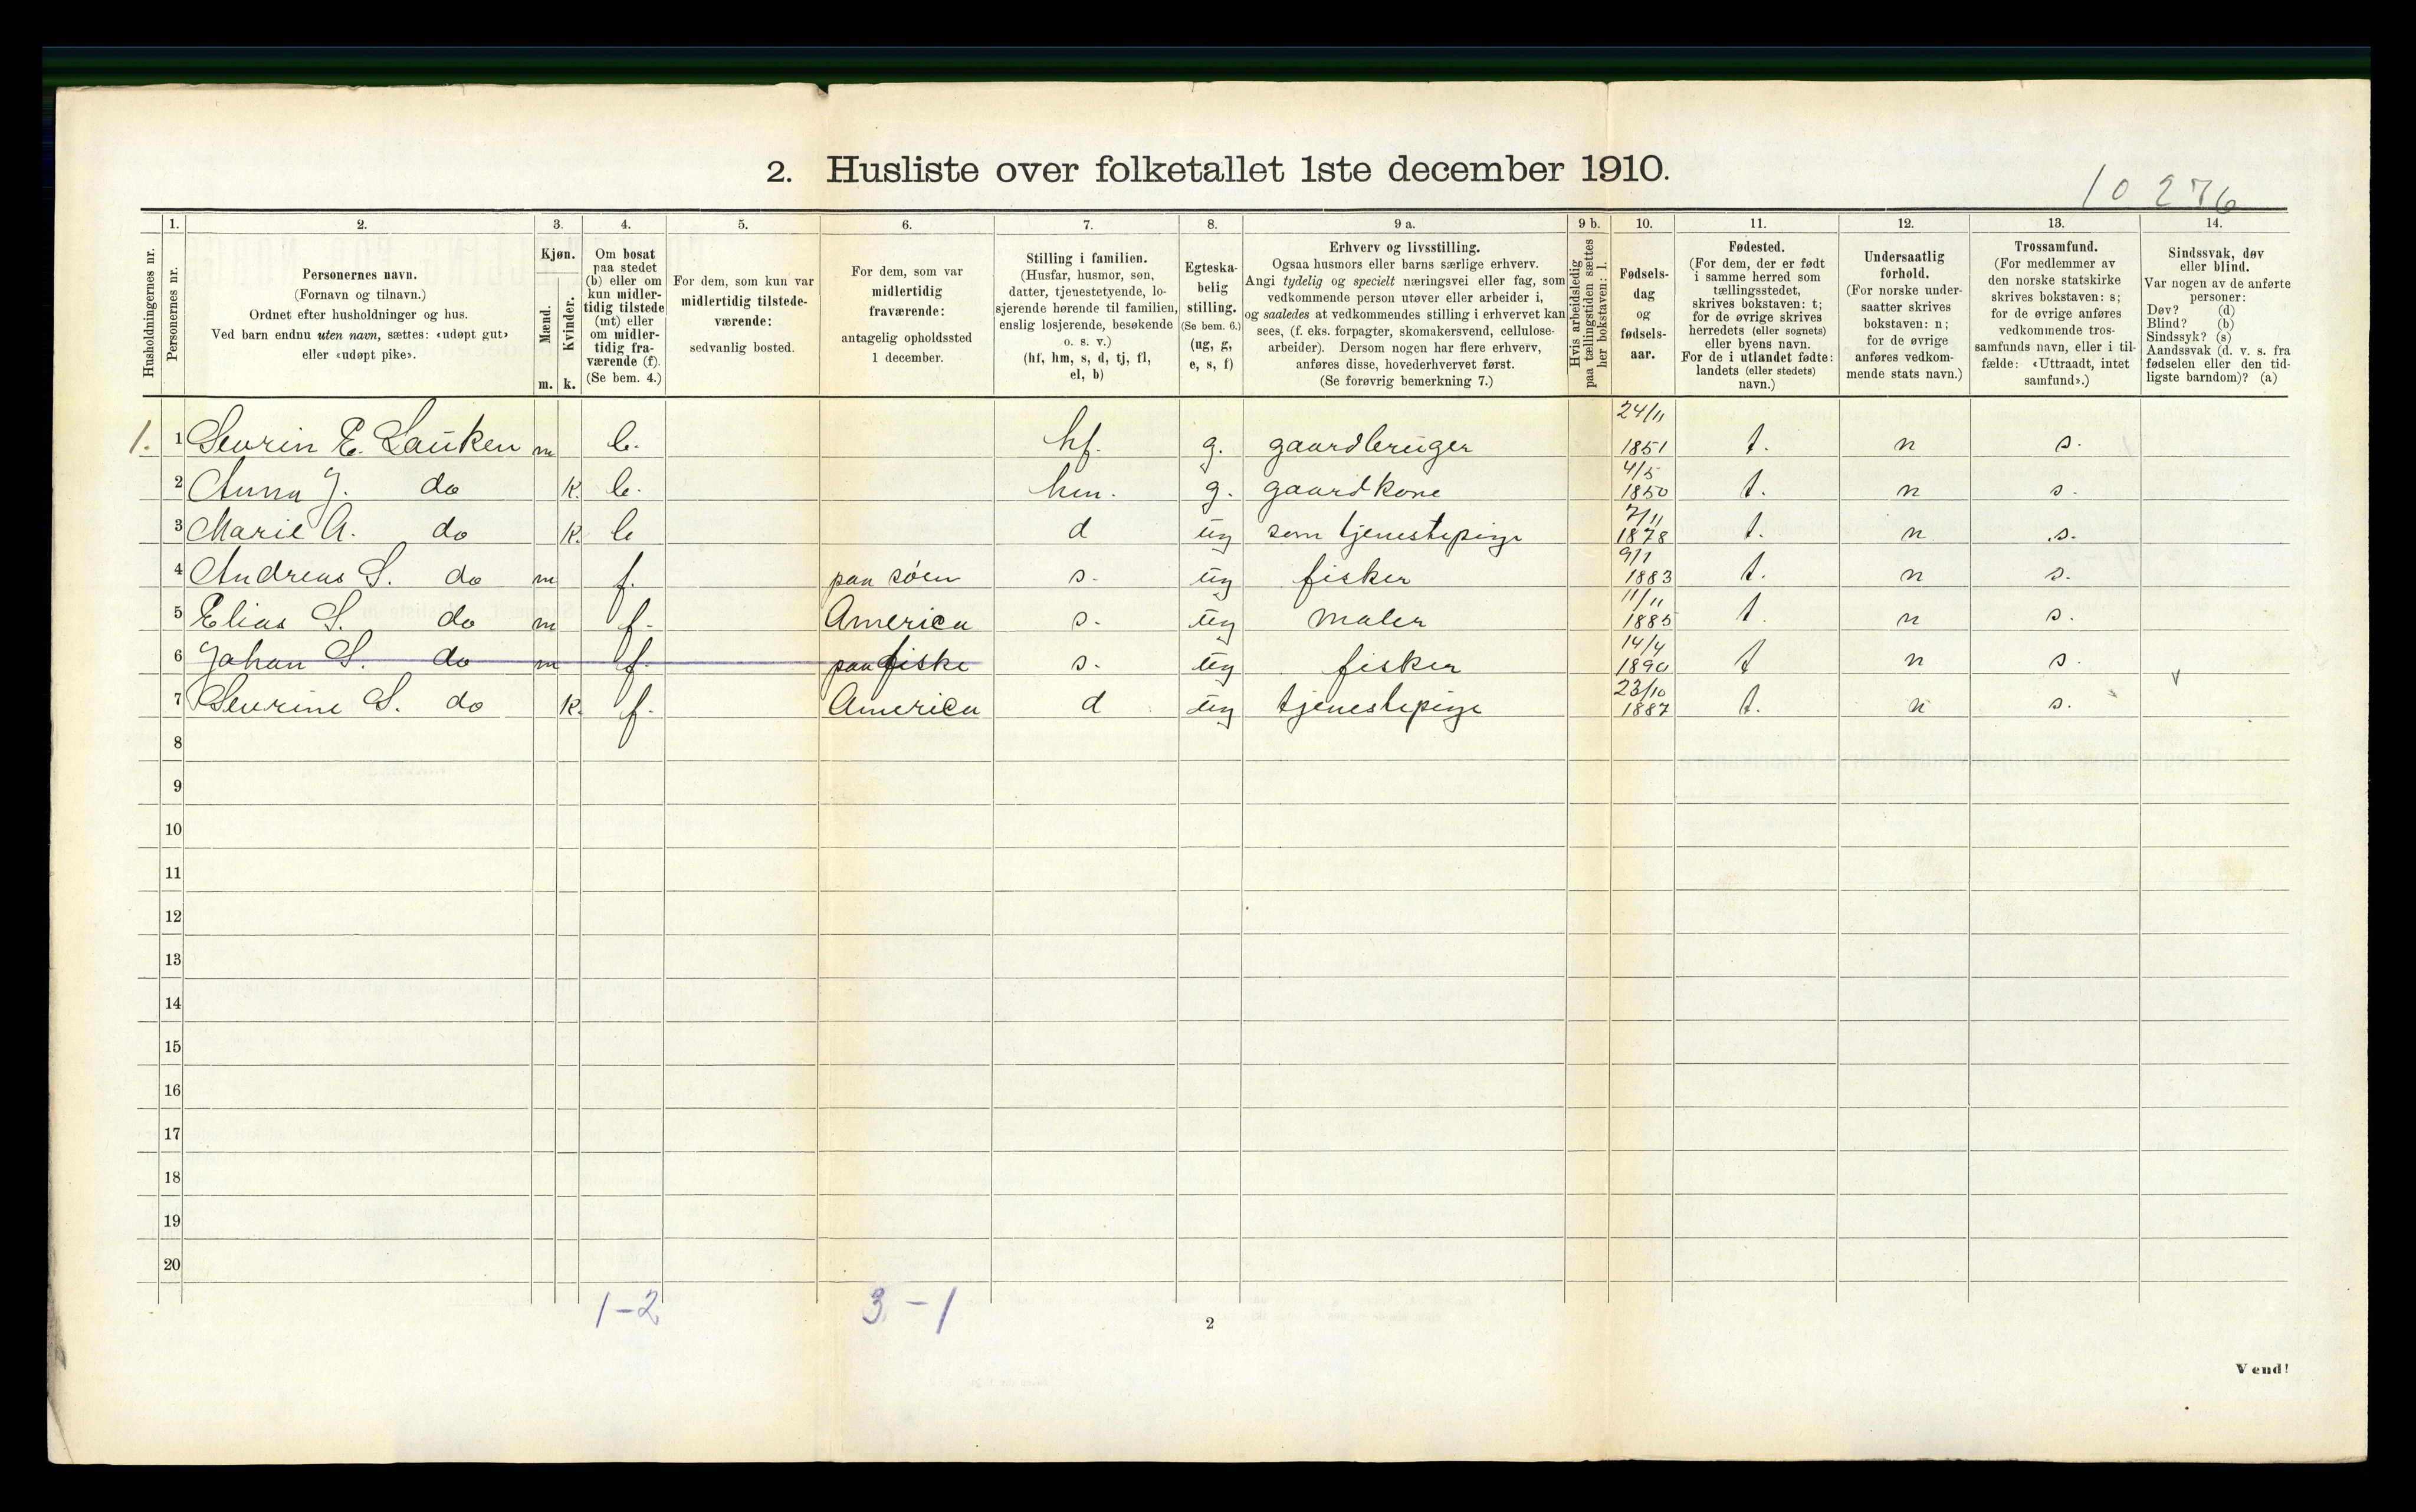 2. Husliste over folketallet 1ste december 1910.
10 276
Husholdningernes nr.
1. Personernes nr.
2. Personernes navn. (Fornavn og tilnavn.) Ordnet efter husholdninger og hus. Ved barn endnu uten navn, sættes: «udøpt gut» eller «udøpt pike».
3. Kjøn. Mænd. m. Kvinder. k.
4. Om bosat paa stedet (b) eller om kun midlertidig tilstede (mt) eller om midlertidig fraværende (f). (Se bem. 4.)
5. For dem, som kun var midlertidig tilstedeværende: sedvanlig bosted.
6. For dem, som var midlertidig fraværende: antagelig opholdssted 1 december.
7. Stilling i familien. (Husfar, husmor, søn, datter, tjenestetyende, losjerende hørende til familien, enslig losjerende, besøkende o. s. v.) (hf, hm, s, d, tj, fl, el, b)
8. Egteskabelig stilling. (Se bem. 6.) (ug, g, e, s, f)
9 a. Erhverv og livsstilling. Ogsaa husmors eller barns særlige erhverv. Angi tydelig og specielt næringsvei eller fag, som vedkommende person utøver eller arbeider i, og saaledes at vedkommendes stilling i erhvervet kan sees, (f. eks. forpagter, skomakersvend, cellulosearbeider). Dersom nogen har flere erhverv, anføres disse, hovederhvervet først. (Se forøvrig bemerkning 7.)
9 b. Hvis arbeidsledig paa tællingstiden sættes her bokstaven: l.
10. Fødselsdag og fødselsaar.
11. Fødested. (For dem, der er født i samme herred som tællingsstedet, skrives bokstaven: t; for de øvrige skrives herredets (eller sognets) eller byens navn. For de i utlandet fødte: landets (eller stedets) navn.)
12. Undersaatlig forhold. (For norske undersaatter skrives bokstaven: n; for de øvrige anføres vedkommende stats navn.)
13. Trossamfund. (For medlemmer av den norske statskirke skrives bokstaven: s; for de øvrige anføres vedkommende trossamfunds navn, eller i tilfælde: «Uttraadt, intet samfund».)
14. Sindssvak, døv eller blind. Var nogen av de anførte personer: Døv? (d) Blind? (b) Sindssyk? (s) Aandssvak (d. v. s. fra fødselen eller den tidligste barndom)? (a)
1. 1 Sevrin E. Lauken m b. hf. g. gaardbruger 24/11 1851 t. n s.
2 Anna J. do k. b. hm. g. gaardkone 4/5 1850 t. n s.
3 Marie A. do k. b d ug som tjenestepige 7/11 1878 t. n s.
4 Andreas S. do m f. paa søen s. ug fisker 9/1 1883 t. n s.
5 Elias S. do m f. America s. ug maler 11/11 1885 t. n s.
6 Johan S. do m f. paa fiske s. ug fisker 14/4 1890 t n s.
7 Sevrine S. do k. f. America d ug tjenestepige 23/10 1887 t. n s. v
8
9
10
11
12
13
14
15
16
17
18
19
20
1-2 3-1
2
Vend!